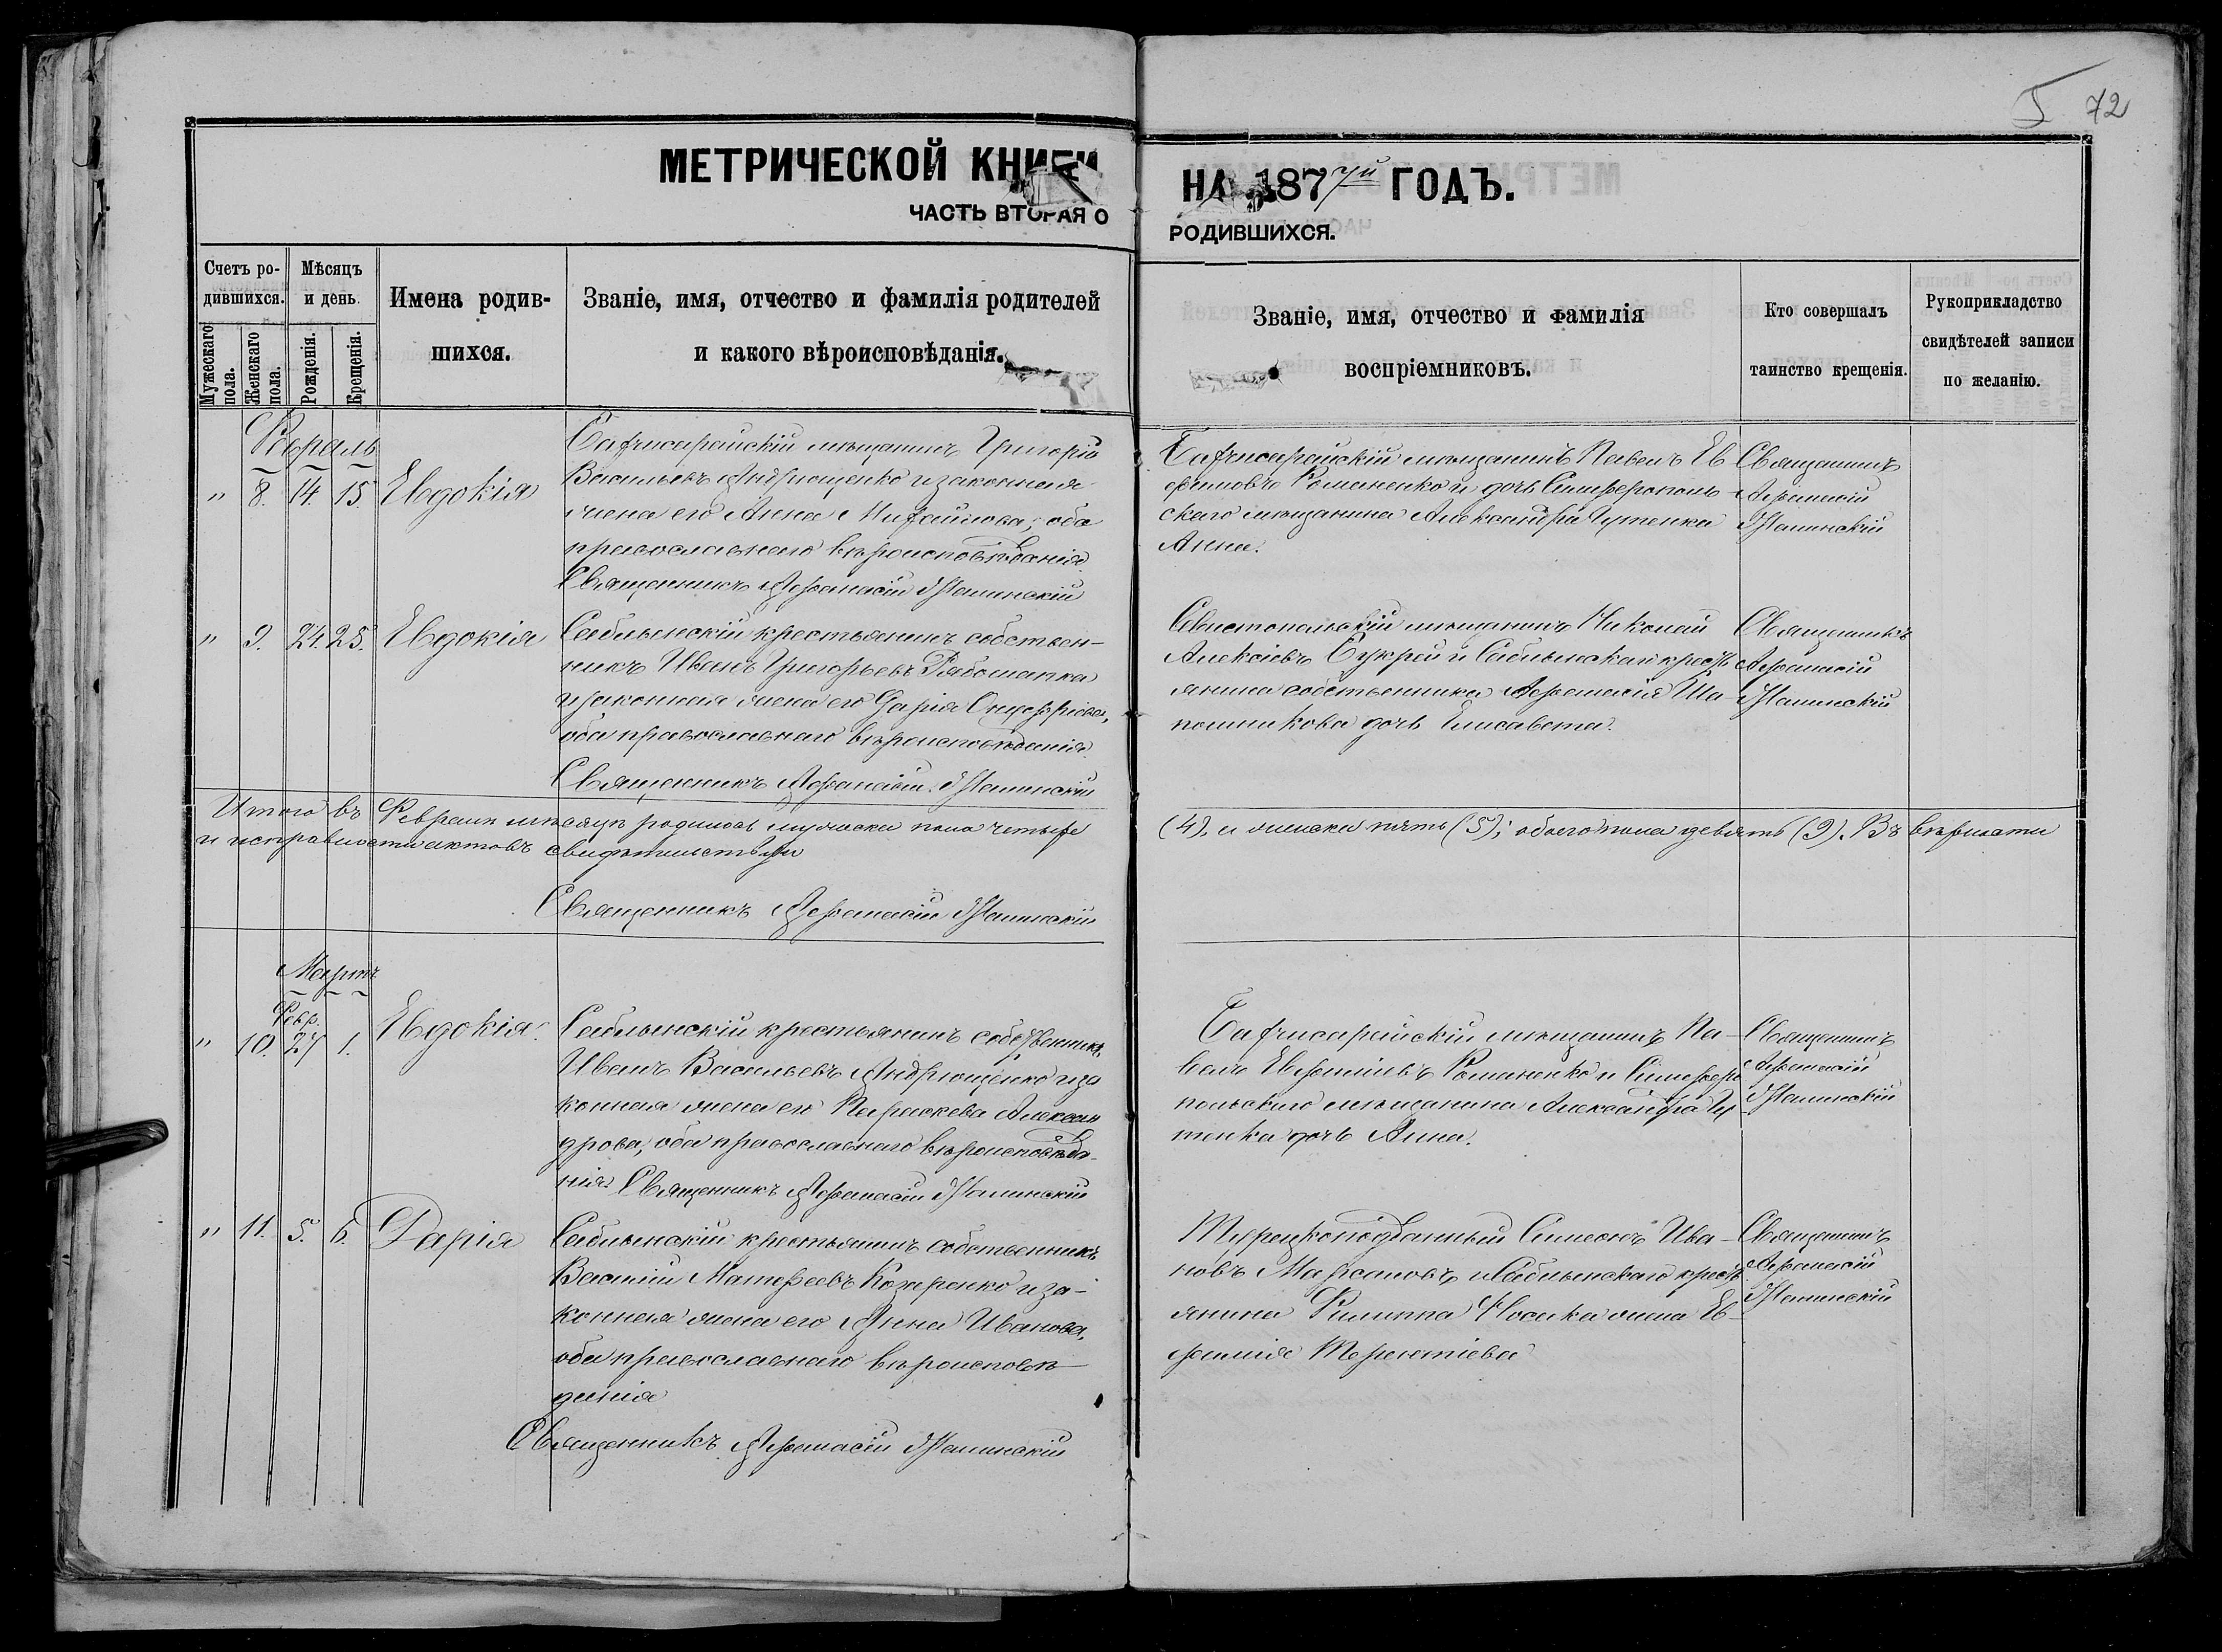 І 72
МЕТРИЧЕСКОЙ КНИГИ
НА 1877ый ГОДЪ.
ЧАСТЬ ВТОРАЯ О
РОДИВШИХСЯ.
Счетъ ро-
дившихся.
Мужескаго
пола.
Женскаго
пола.
Мѣсяцъ
и день.
Рожденія.
Крещенія.
Имена родив-
шихся.
Званіе, имя, отчество и фамилія родителей
и какого вѣроисповѣданія.
Званіе, имя, отчество и фамилія
воспріемниковъ.
Кто совершалъ
таинство крещенія.
Рукоприкладство
свидѣтелей записи
по желанію.
Февраль
" 8. 14. 15. Евдокія
Бахчисарайскій мѣщанинъ Григорій
Васильевъ Андрющенко и законная
жена его Анна Михайлова; оба
православнаго вѣроисповѣданія.
Священникъ Афанасій
Бахчисарайскій мѣщанинъ Павелъ Ев
фимовъ Романенко и дочь Симферополь
скаго мѣщанина Александра Чутенка
Анна.
Священникъ
Афанасій
" 9. 24. 25. Евдокія
Саблынскій крестьянинъ собствен-
никъ Иванъ Григорьевъ Рябошапка
и законная жена его Дарія Онуфріева,
оба православнаго вѣроисповѣданія.
Священникъ Афанасій
Севастопольскій мѣщанинъ Николай
Алексіевъ Букрей и Саблынскаго кресть
янина собственника Афанасія Ша-
пошникова дочь Елисавета.
Священникъ
Афанасій
Итого въ Февралѣ мѣсяцѣ родилось мужеска пола четыре
(4), и женска пять (5); обоего пола девять (9). Въ вѣрности
и исправности актовъ свидѣтельствуемъ
Священникъ Афанасій
Мартъ
Февр.
" 10. 27 1. Евдокія.
Саблынскій крестьянинъ собственникъ
Иванъ Васильевъ Андрющенко и за
конная жена его Параскева Алексан
дрова, оба православнаго вѣроисповѣда-
нія. Священникъ Афанасій
Бахчисарайскій мѣщанинъ Па-
велъ Евфиміевъ Романенко и Симферо
польскаго мѣщанина Александра Чу
тенка дочь Анна.
Священникъ
Афанасій
" 11. 5. 6. Дарія
Саблынскій крестьянинъ собственникъ
Василій Матфеевъ Козаренко и за-
конная жена его Анна Иванова,
оба православнаго вѣроисповѣ-
данія
Священникъ Афанасій
Турецкоподданный Симеонъ Ива-
новъ Марсановъ и Саблынскаго кресть
янина Филиппа Носика жена Ев-
фимія Терентіева
Священникъ
Афанасій